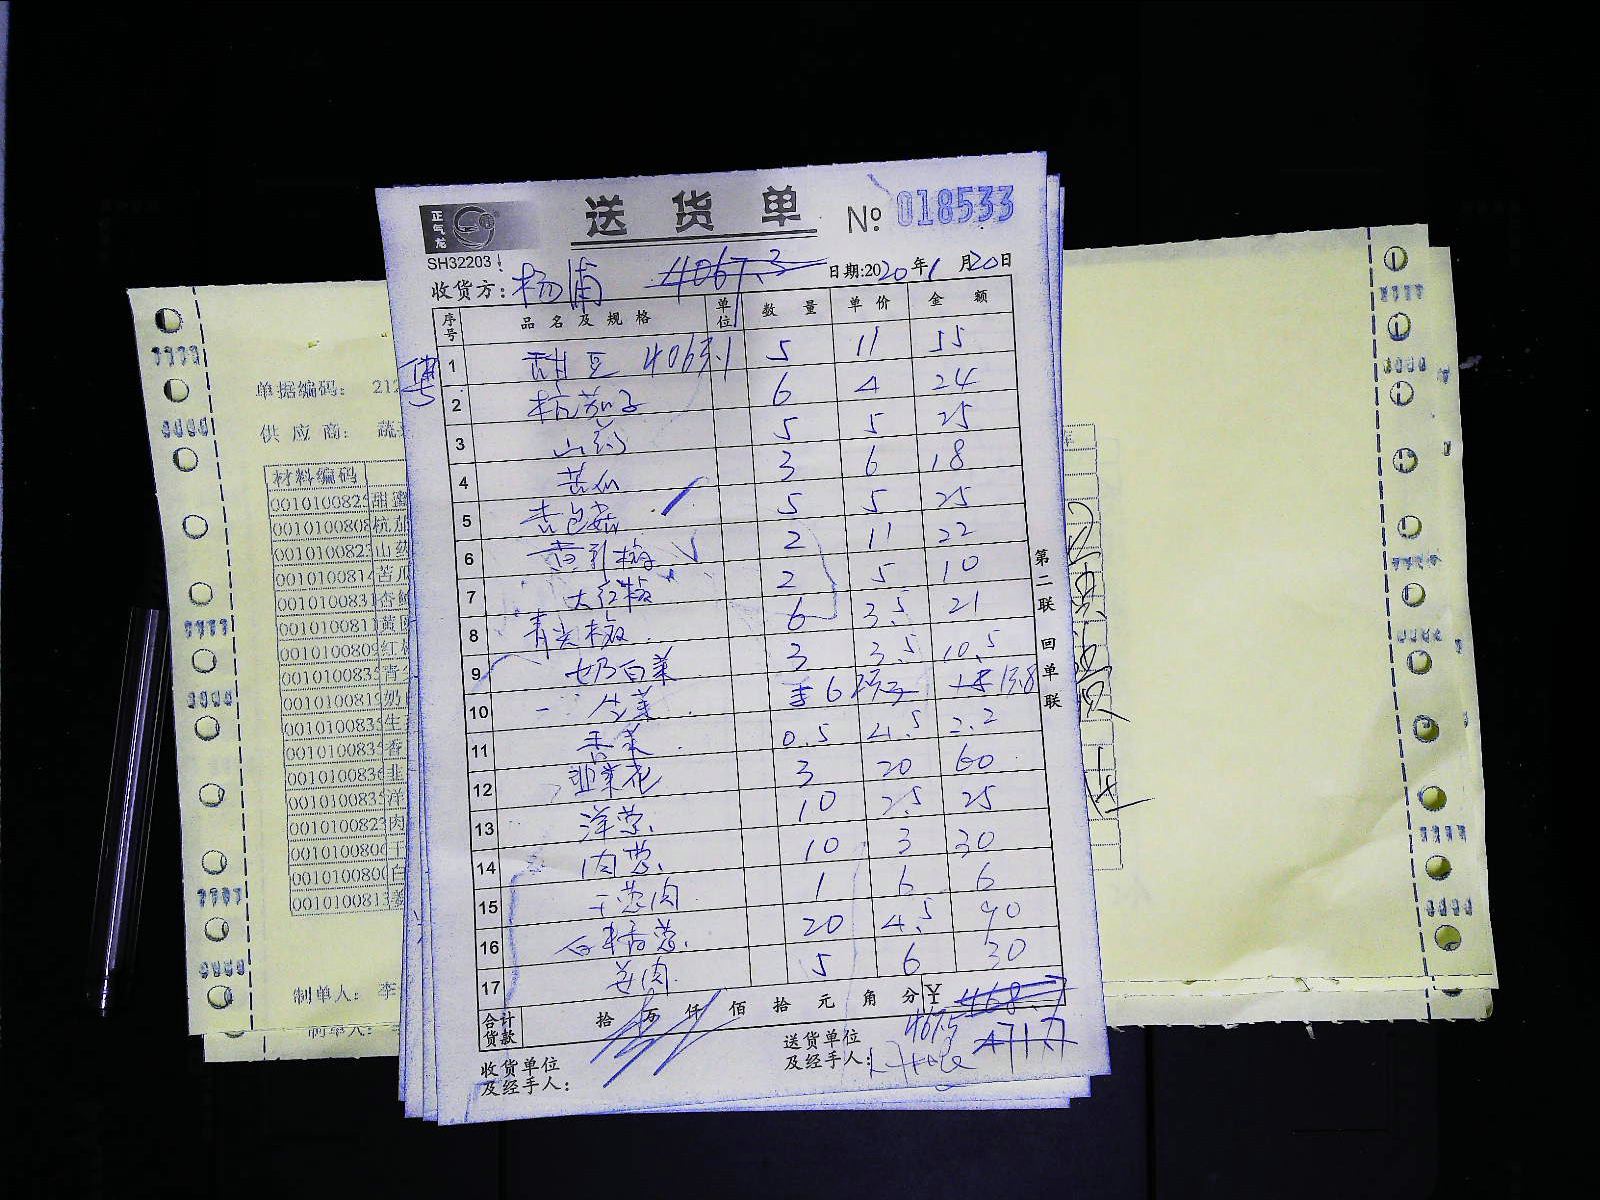 正气龙
送货单 № 018533
SH32203
收货方: 杨浦 4067.3 日期:2020年1月20日
序号 品名及规格 单位 数量 单价 金额
1 甜豆 4063.1 5 11 55
2 杭茄子 6 4 24
3 山药 5 5 25
4 苦瓜 3 6 18
5 杏包菇 5 5 25
6 黄彩椒 2 11 22
7 大红椒 2 5 10
8 青尖椒 6 3.5 21
9 奶白菜 3 3.5 10.5
10 生菜 6 13.8
11 香菜 0.5 4.5 2.2
12 韭菜花 3 20 60
13 洋葱 10 2.5 25
14 肉葱 10 3 30
15 干葱肉 1 6 6
16 白米葱 20 4.5 90
17 姜肉 5 6 30
合计货款 拾 万 仟 佰 拾 元 角 分 ¥ 468.7
467.5
471.7
收货单位及经手人:
送货单位及经手人:
第二联 回单联
单据编码: 212
供应商: 蔬
材料编码
001010082 甜蜜
001010080 杭茄
001010082 山药
001010081 苦瓜
001010083 杏鲍
001010081 黄
001010080 红
001010083 青尖
001010081 奶
001010083 生
001010083 香
001010083 韭
001010083 洋
001010082 肉
001010080 干
001010080 白
001010081 姜
制单人: 李
制单人: